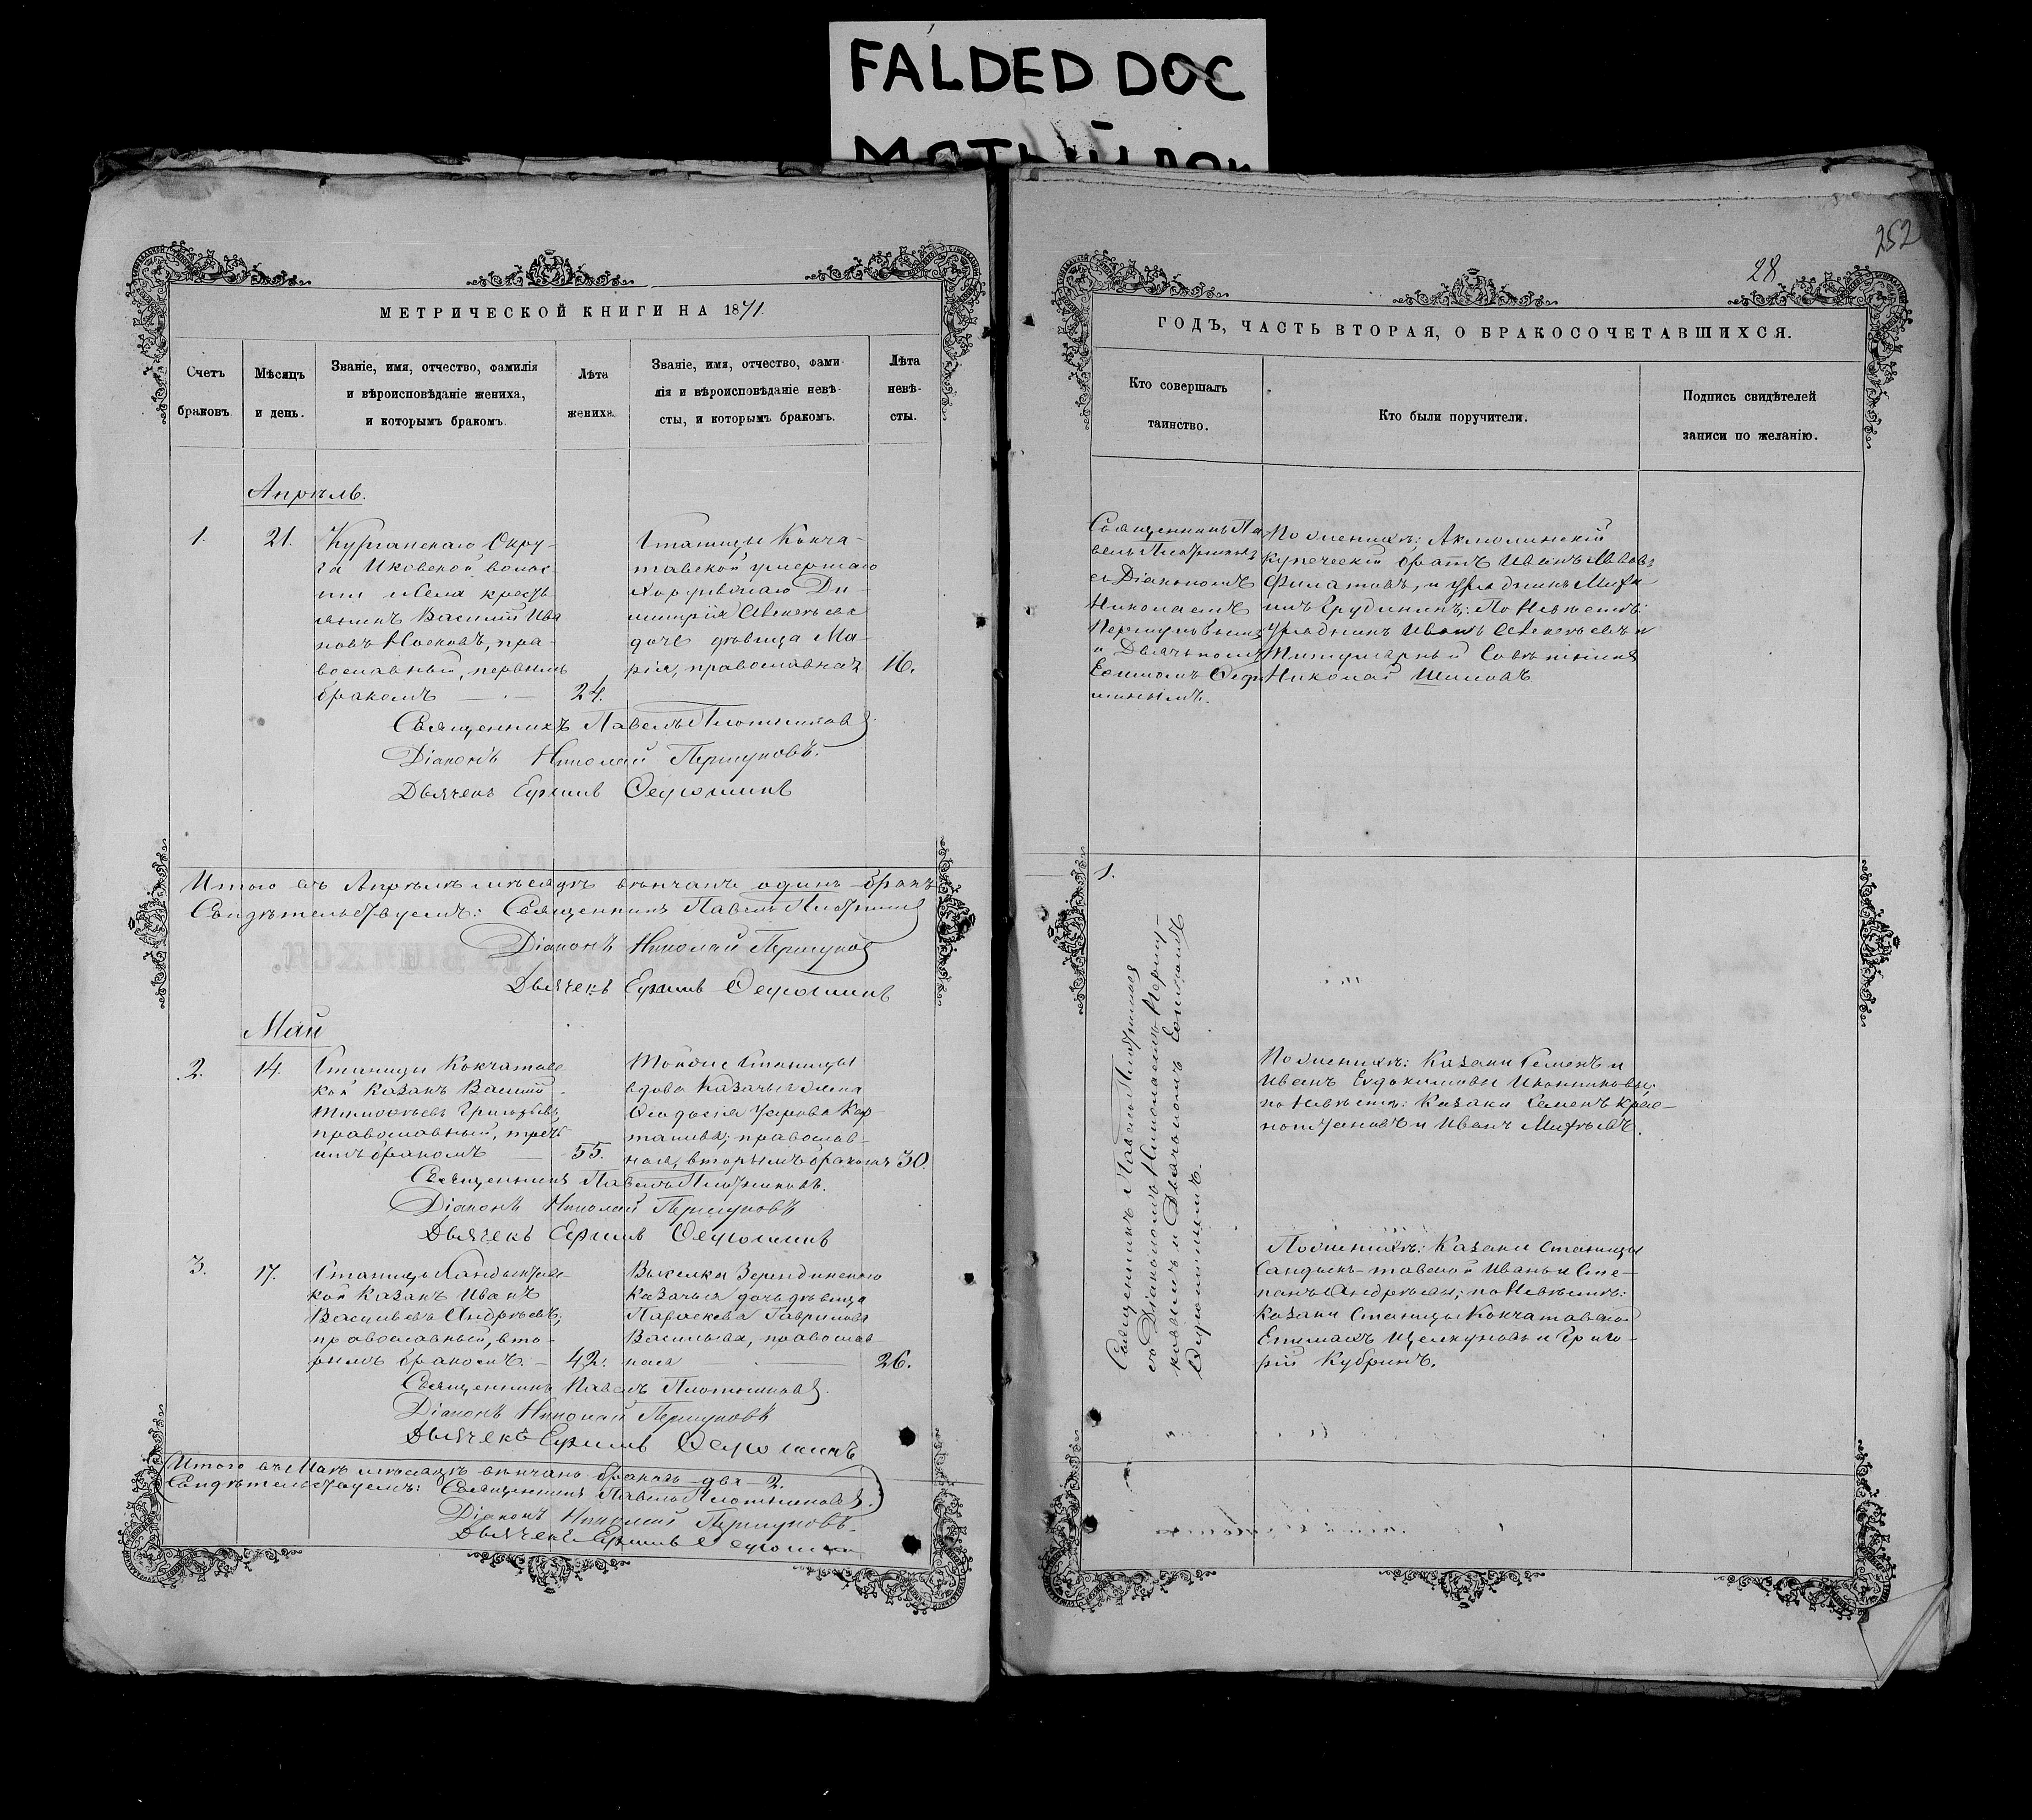 FALDED DOC
МЕТРИЧЕСКОЙ КНИГИ НА 1871
Счетъ
браковъ.
Мѣсяцъ
и день.
Званіе, имя, отчество, фамилія
и вѣроисповѣданіе жениха,
и которымъ бракомъ.
Лѣта
жениха.
Званіе, имя, отчество, фами
лія и вѣроисповѣданіе невѣ-
сты, и которымъ бракомъ.
Лѣта
невѣ-
сты.
Апрѣль.
1.
21.
Курганскаго Окру-
га Иковской волос-
ти села кресть
янинъ Василій Ива
новъ Носковъ, пра-
вославный, первымъ
бракомъ
24.
Станицы Кокча-
тавской умершаго
Хорунжаго Ди-
митрія
дочь дѣвица Ма-
рія, православная
16.
Священникъ Павелъ Плотниковъ.
Діаконъ Николай Першуковъ.
Дьячекъ Ефимъ Ѳедюшинъ
Итого въ Апрѣлѣ мѣсяцѣ вѣнчанъ одинъ бракъ
Свидѣтельствуемъ: Священникъ Павелъ Плотниковъ
Діаконъ Николай Першуковъ
Дьячекъ Ефимъ Ѳедюшинъ
Май
2.
14.
Станицы Кокчатавс
кой Казакъ Василій
Тимофеевъ Григорьевъ,
православный, треть
имъ бракомъ
55.
Тойже Станицы
вдова Казачья жена
Ѳедосья
православ-
ная, вторымъ бракомъ
30.
Священникъ Павелъ Плотниковъ.
Діаконъ Николай Першуковъ
Дьячекъ Ефимъ Ѳедюшинъ
3.
17.
Станицы Сандыктавс
кой Казакъ Иванъ
Васильевъ Андреевъ,
православный, вто-
рымъ бракомъ.
42.
Выселка Зерендинскаго
Казачья дочь дѣвица
Параскева Гаврилова
Васильева, православ-
ная
26.
Священникъ Павелъ Плотниковъ.
Діаконъ Николай Першуковъ
Дьячекъ Ефимъ Ѳедюшинъ
Итого въ Маѣ мѣсяцѣ вѣнчано браковъ два 2.
Свидѣтельствуемъ: Священникъ Павелъ Плотниковъ.
Діаконъ Николай Першуковъ.
Дьячекъ Ефимъ Ѳедюшинъ
252
28
ГОДЪ, ЧАСТЬ ВТОРАЯ, О БРАКОСОЧЕТАВШИХСЯ.
Кто совершалъ
таинство.
Кто были поручители.
Подпись свидѣтелей
записи по желанію.
Священникъ Па
велъ Плотниковъ
съ Діакономъ
Николаемъ
Першуковымъ
и Дьячькомъ
Ефимомъ Ѳедю
шинымъ.
По женихѣ: Акмолинскій
купеческій братъ Иванъ Львовъ
Филатовъ, и урядникъ Миха
илъ Грудининъ; По Невѣстѣ:
урядникъ Иванъ
Титулярный Совѣтникъ
Николай Шиловъ
1.
Священникъ Павелъ Плотниковъ
съ Діакономъ Николаемъ Першу-
ковымъ и Дьячькомъ Ефимомъ
Ѳедюшинымъ.
По женихѣ: Казаки Семенъ и
Иванъ Евдокимовы Иконниковы;
по Невѣстѣ: Казаки Семенъ Крас-
и Иванъ Михѣевъ.
По женихѣ: Казаки станицы
Сандык-тавской Иванъ и Сте-
панъ Андреевы; по Невѣстѣ:
Казаки Станицы Кокчатавской
Щелкуновъ и Григо-
рій Кубринъ.